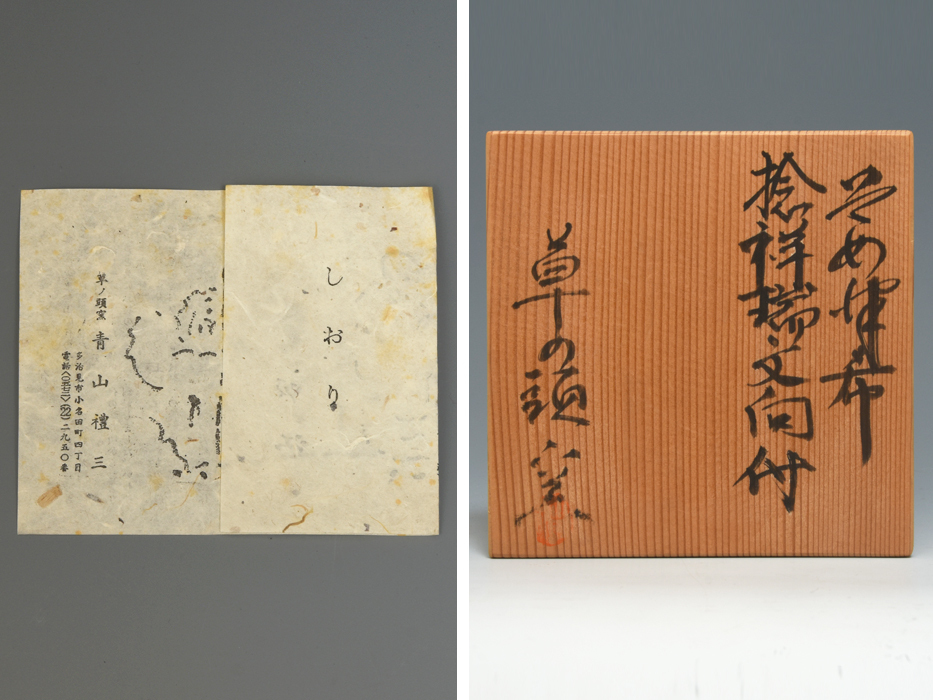 しおり
草ノ頭窯 青山禮三
多治見市小名田町四丁目
電話〈〇五七二〉二九五〇番
そめ津希
捻祥瑞文向付
草の頭窯